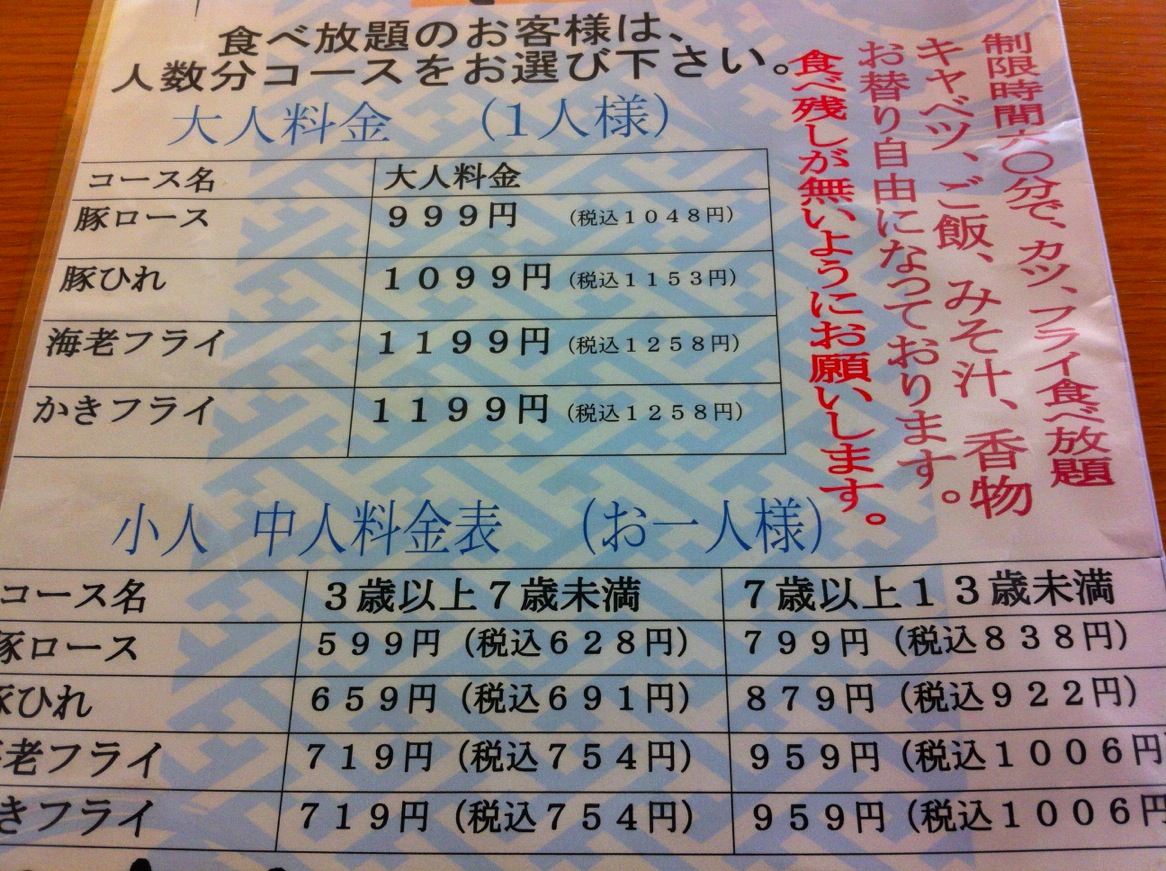 食べ放題のお客様は、
人数分コースをお選び下さい。
大人料金 （1人様）
コース名 大人料金
豚ロース ９９９円 （税込１０４８円）
豚ひれ １０９９円 （税込１１５３円）
海老フライ １１９９円 （税込１２５８円）
かきフライ １１９９円 （税込１２５８円）
制限時間六〇分で、カツ、フライ食べ放題
キャベツ、ご飯、みそ汁、香物
お替り自由になっております。
食べ残しが無いようにお願いします。
小人 中人料金表 （お一人様）
コース名 ３歳以上７歳未満 ７歳以上１３歳未満
豚ロース ５９９円（税込６２８円） ７９９円（税込８３８円）
豚ひれ ６５９円（税込６９１円） ８７９円（税込９２２円）
老フライ ７１９円（税込７５４円） ９５９円（税込１００６円
きフライ ７１９円（税込７５４円） ９５９円（税込１００６円